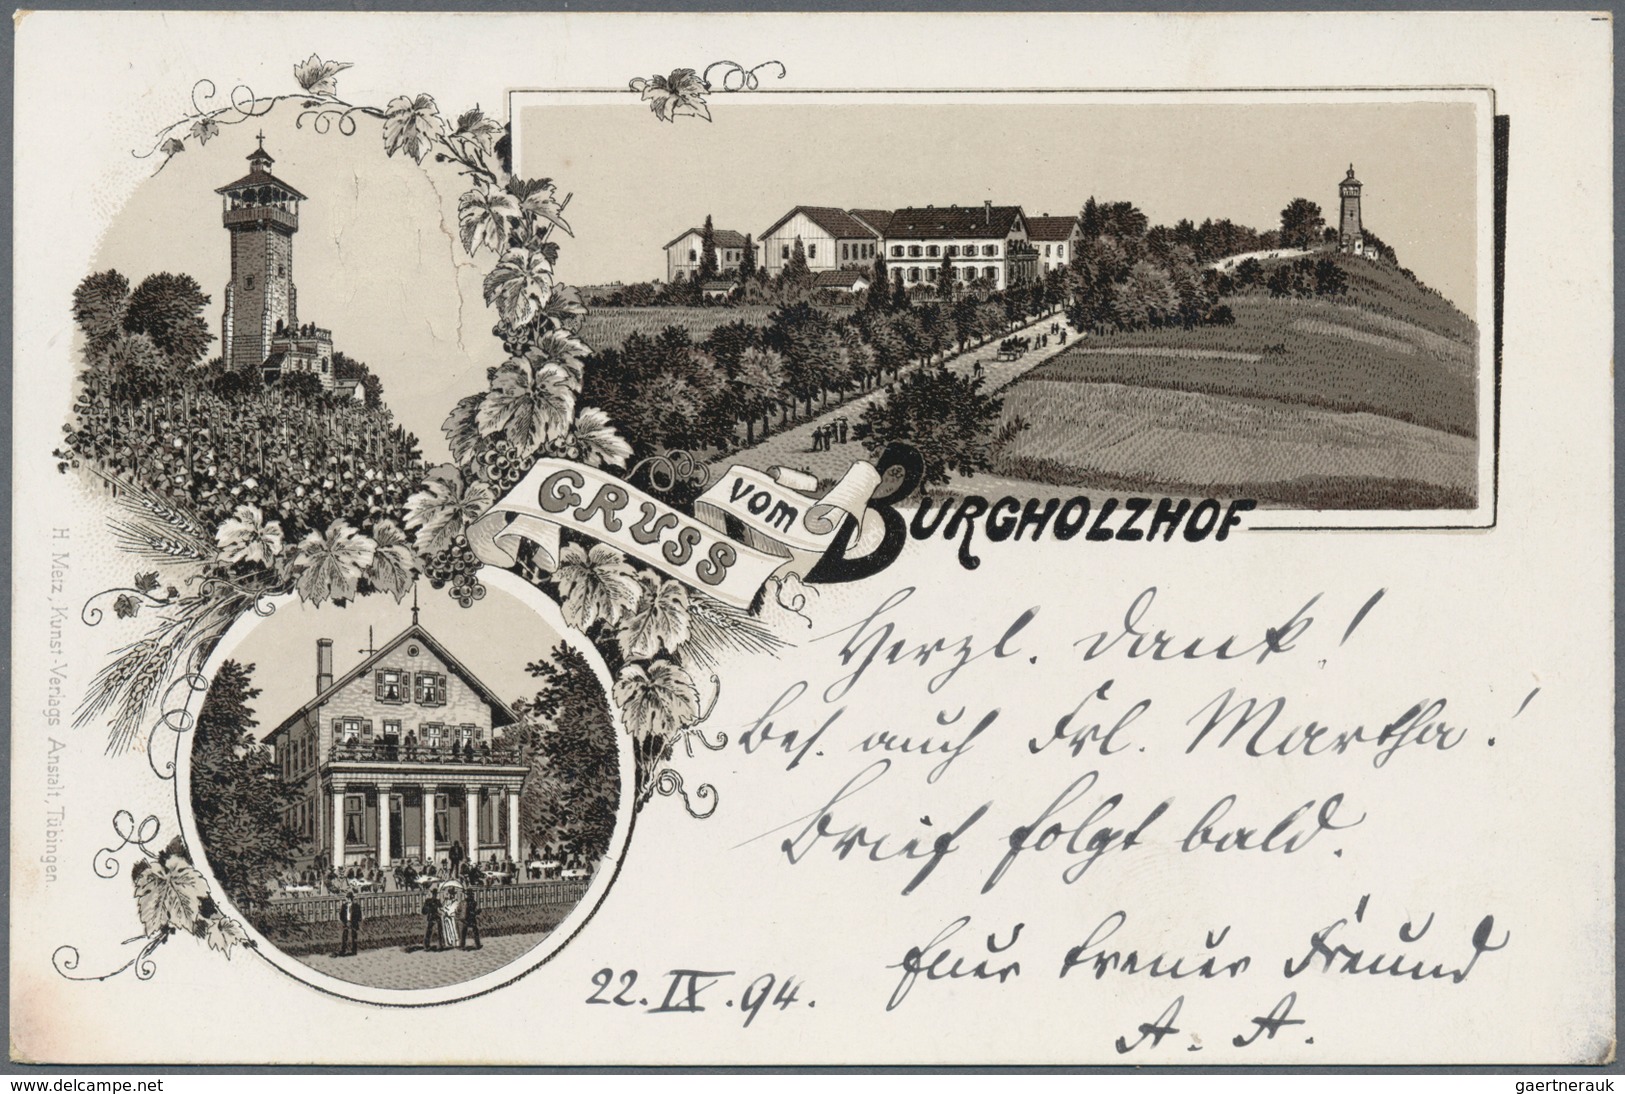 GRUSS VOM BURGHOLZHOF
Herzl. Dank!
Bes. auch Frl. Martha!
Brief folgt bald.
Euer treuer Freund
A. A.
22. IX. 94.
H. Metz, Kunst-Verlags Anstalt, Tübingen.
www.delcampe.net
gaertnerauk